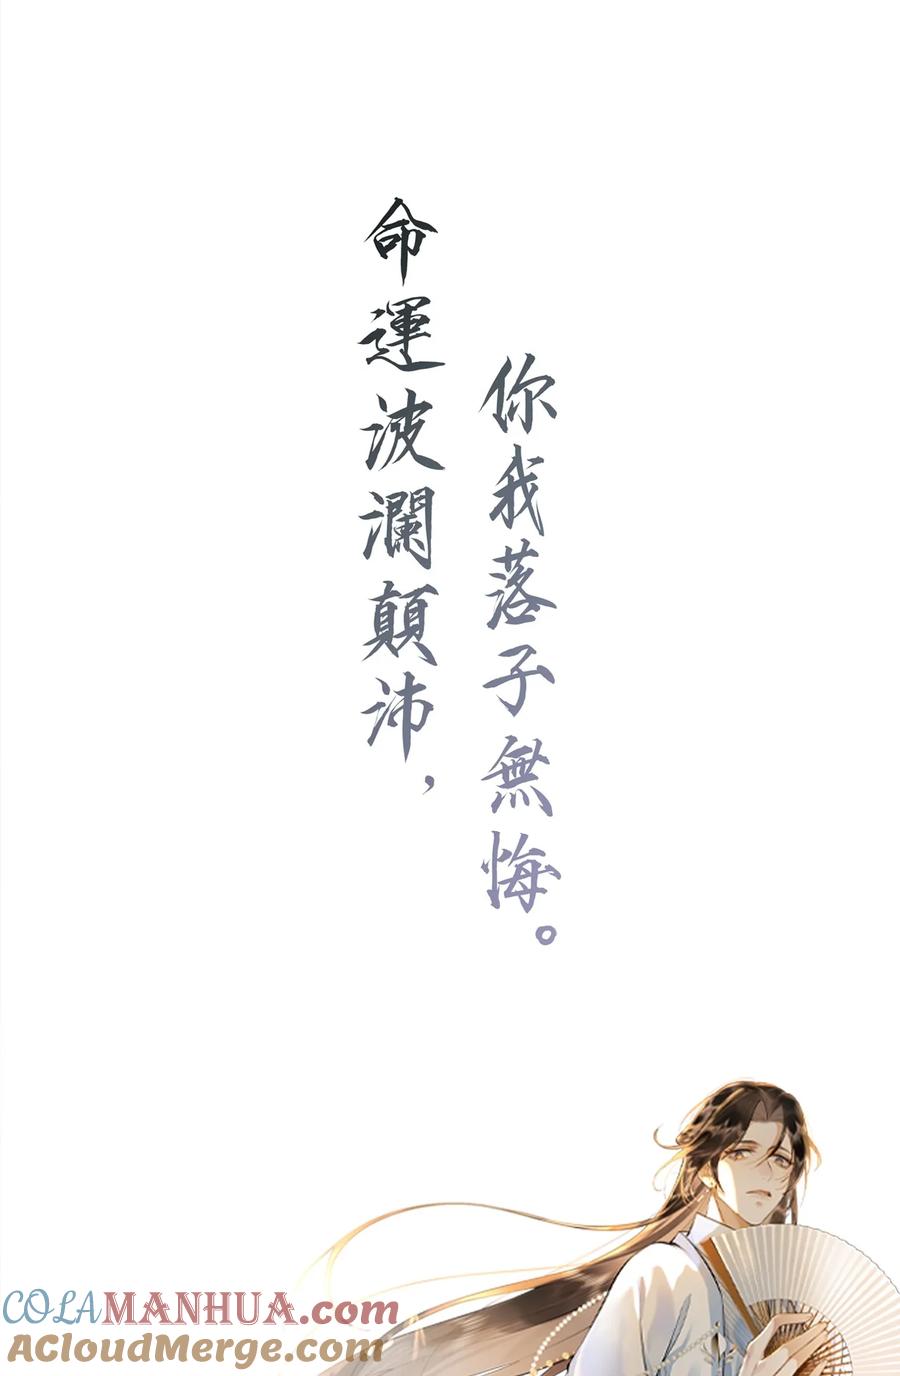 命運波瀾顛沛，
你我落子無悔。
COLAMANHUA.com
AcloudMerge.com